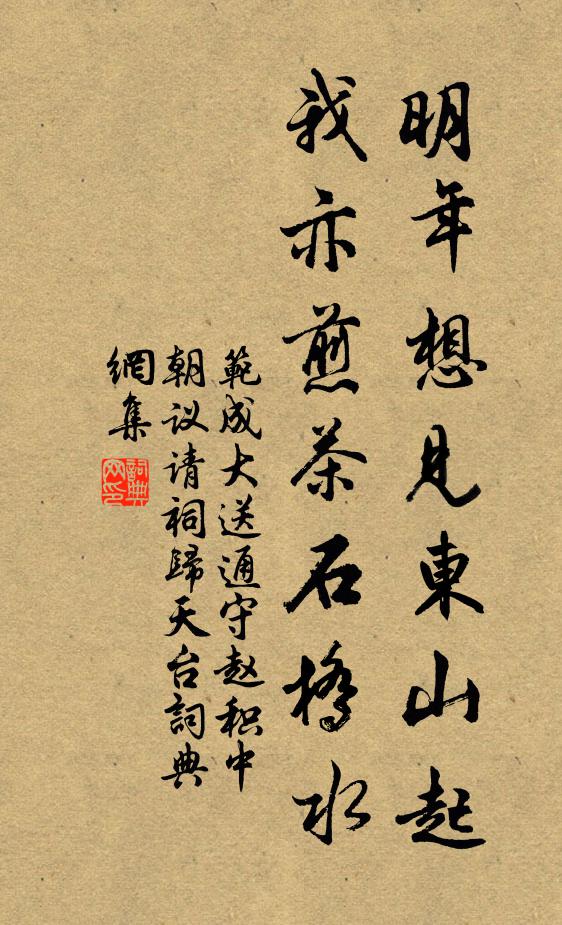 明年想见東山起
我亦煎茶石橋水
範成大送通守赵积中
朝议请祠歸天台詞典
網集
詞典网印